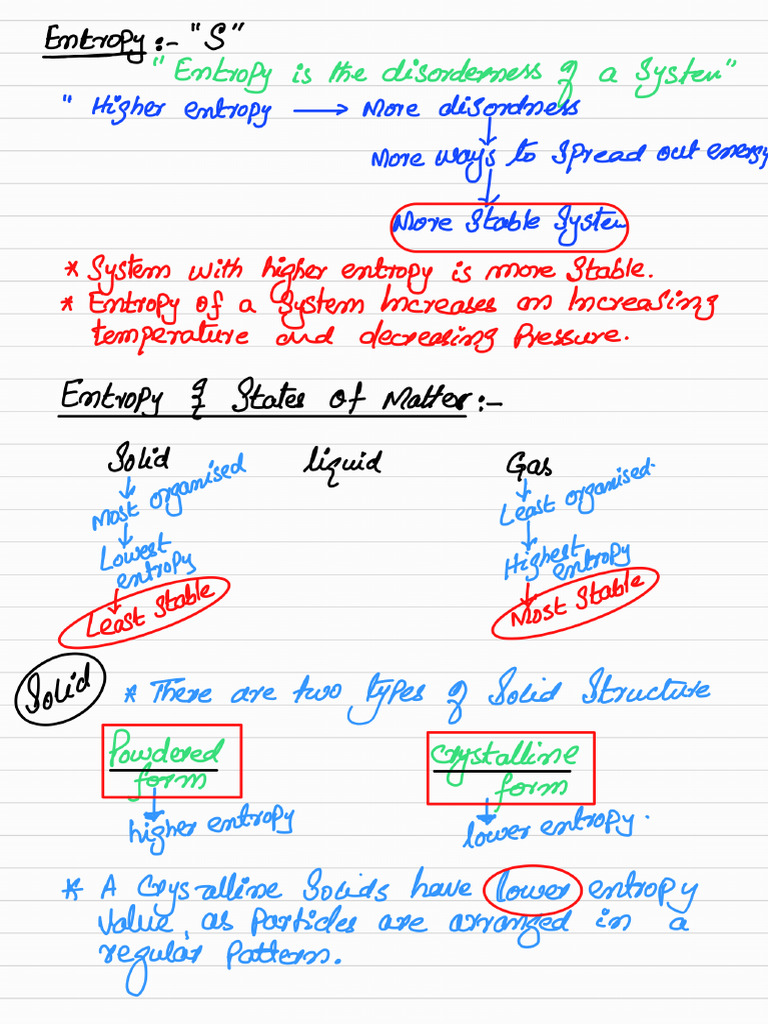 Entropy :- "S"
"Entropy is the disorderness of a System"
" Higher entropy → More disordness
More ways to Spread out energy
More Stable System
* System with higher entropy is more Stable.
* Entropy of a System Increases on Increasing
temperature and decreasing Pressure.
Entropy & States of Matter :-
Solid liquid Gas
Most organised Least organised.
Lowest Highest
entropy entropy
Least Stable Most Stable
Solid * There are two types of Solid Structure
Powdered Crystalline
form form
higher entropy lower entropy.
* A Crystalline Solids have lower entropy
Value, as Particles are arranged in a
regular Pattern.